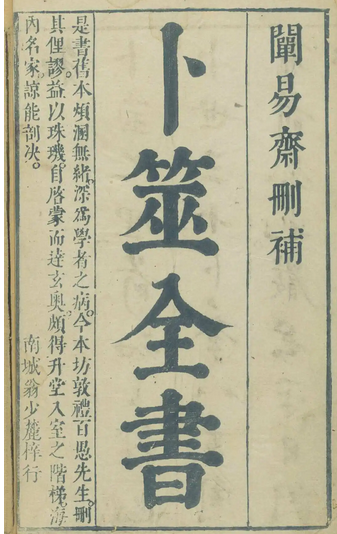 闡易齋刪補
卜筮全書
是書舊本煩溷無緒。深為學者之病。今本坊敦禮百愚先生。刪
其俚謬。益以珠璣。自啓蒙而達玄奧。頗得升堂入室之階梯。海
內名家。諒能剖决。
南城翁少麓梓行